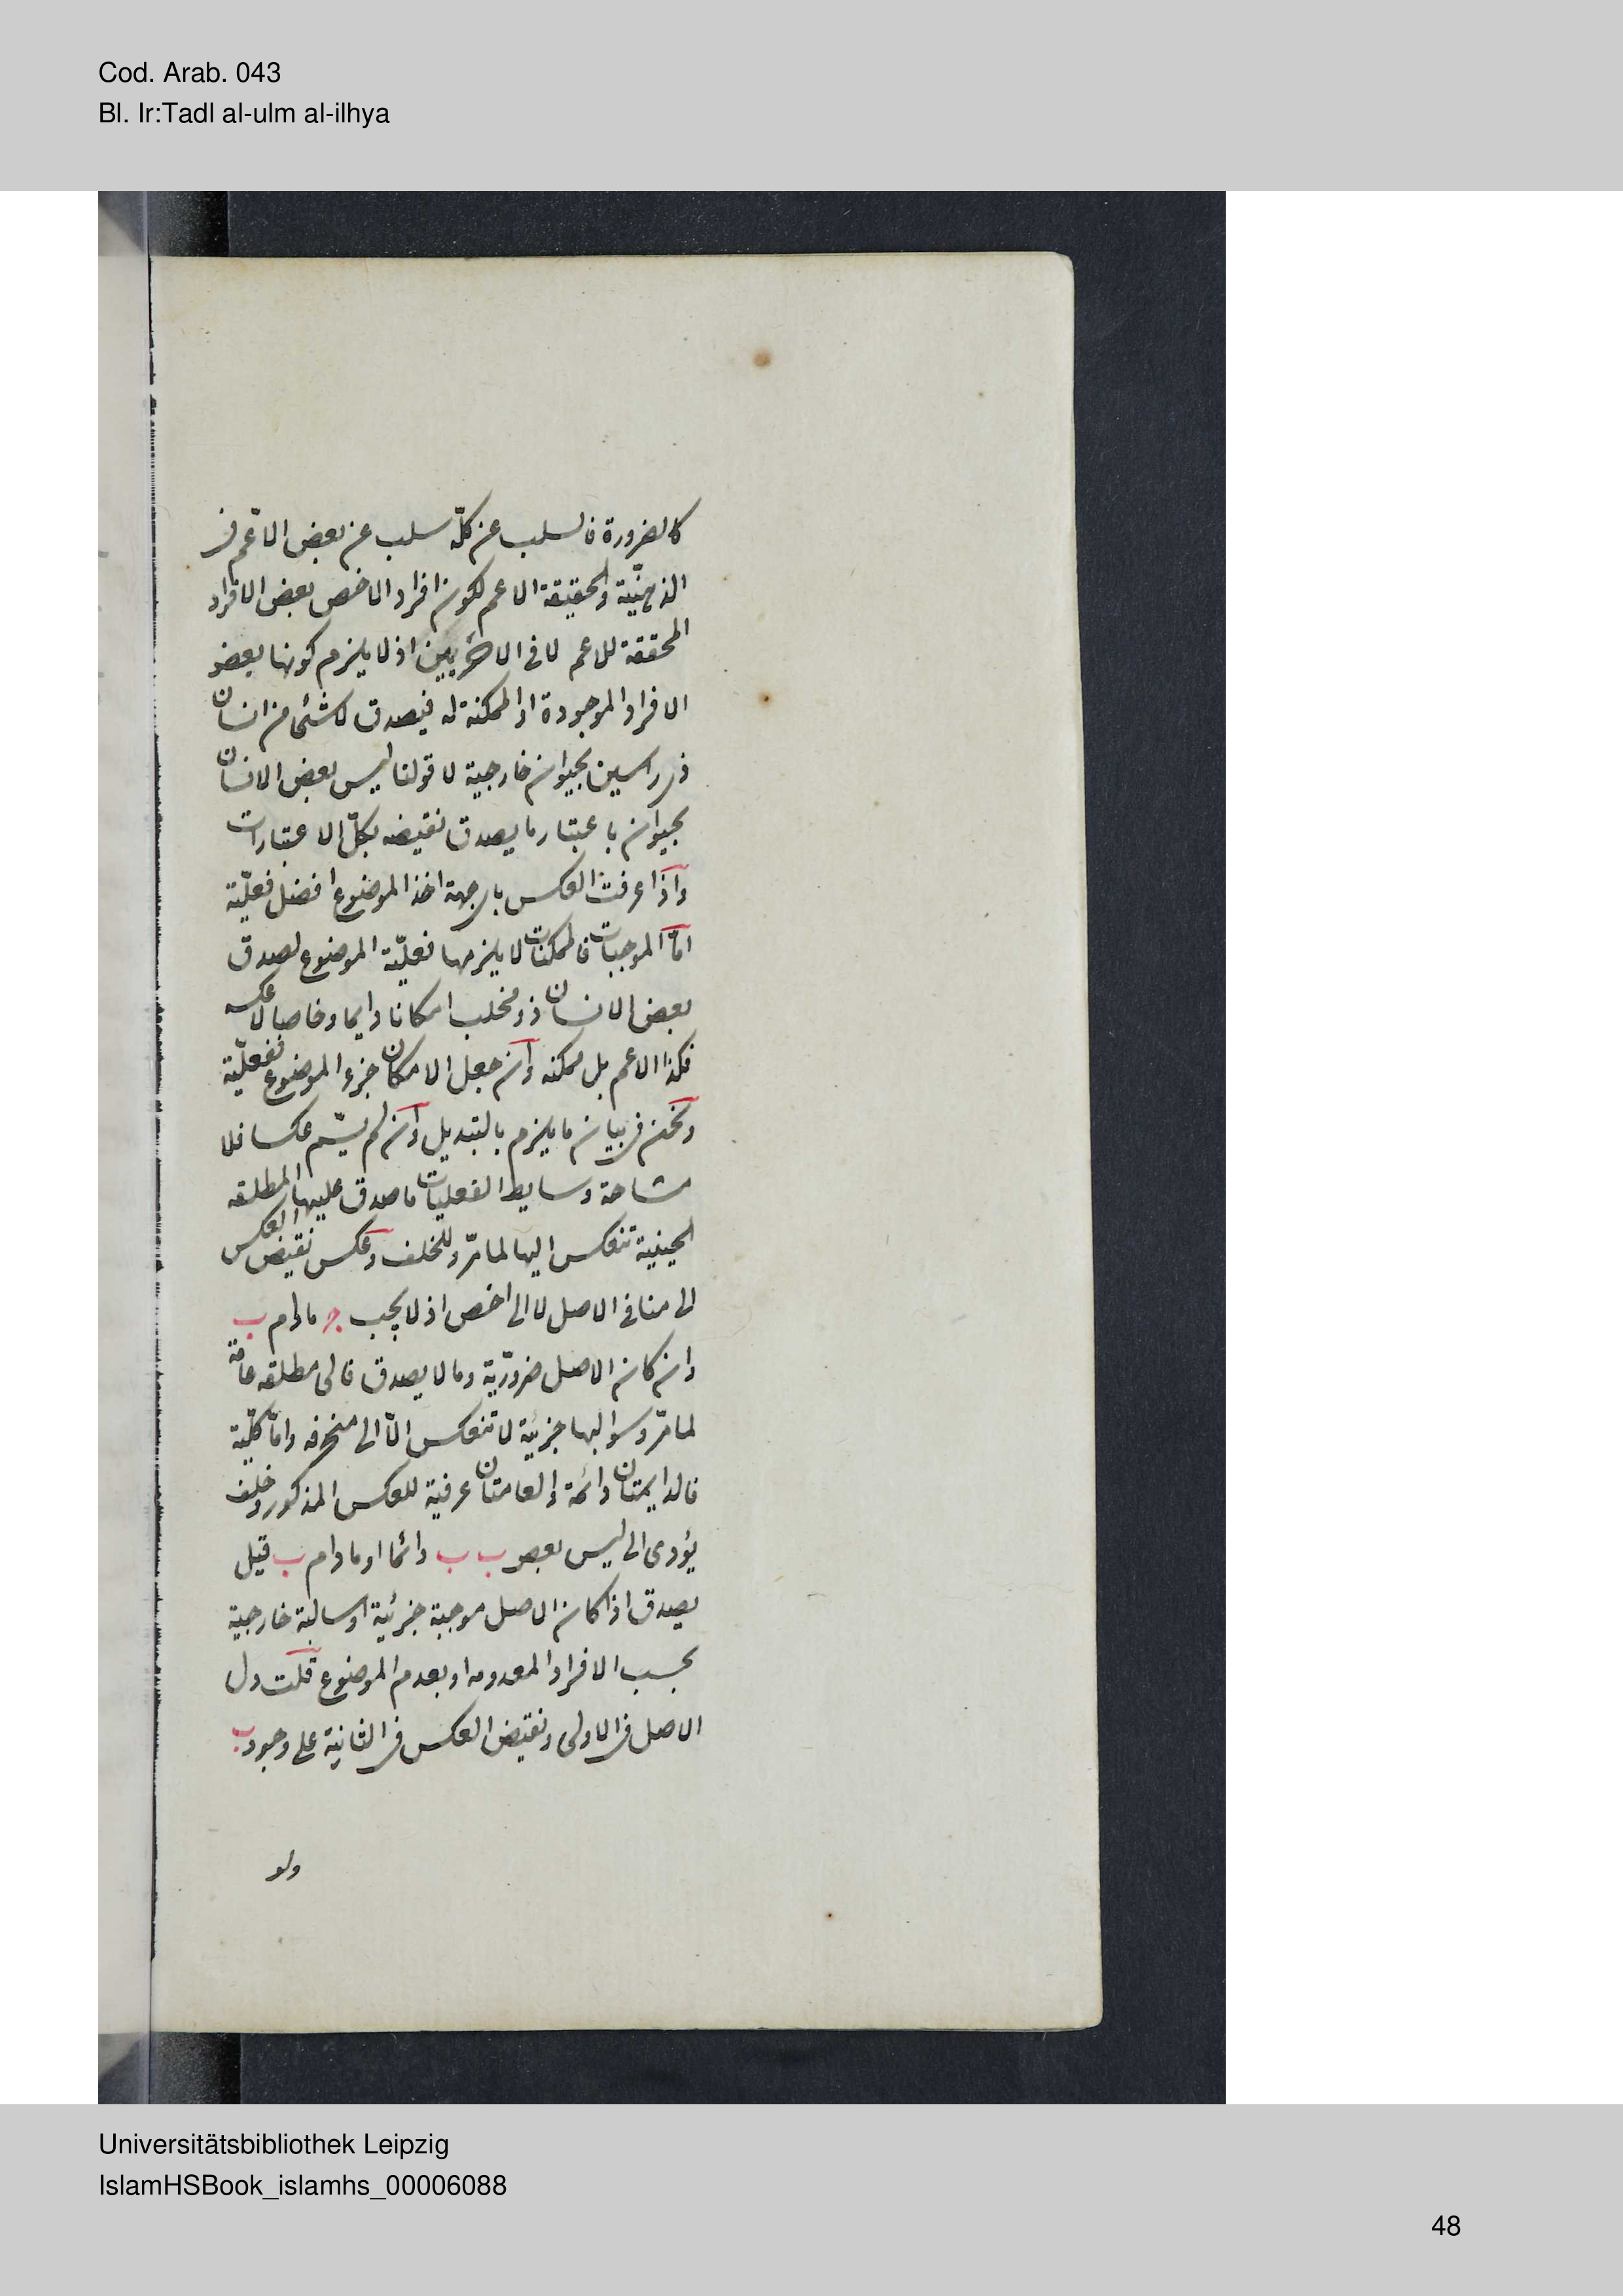 Cod. Arab. 043
Bl. Ir:Tadl al-ulm al-ilhya
كالضرورة فالسلب عن كلّه سلب عن بعض الاعّم فى
الذهنيّة والحقيقة الاعم لكون افراد الاخص بعض الافراد
المحققة للاعم لا فى الاخريين اذ لا يلزم كونها بعض
الافراد الموجودة او الممكنة له فيصدق لا شئ من انسان
ذى راسين بحيوان خارجية لا قولنا ليس بعض الانسان
بحيوان باعتبار ما يصدق نقيضه بكلّ الاعتبارات
واذا عرفت العكس باى جهة اخذ الموضوع افضل فعليّة
امّا الموجبات فالممكنات لا يلزمها فعليّة الموضوع لصدق
بعض الانسان ذو مخلب امكانا دايما وخاصا لا عكسه
فكذا الاعم بل ممكنه وان جعل الامكان جزء الموضوع ففعليّة
ونحن فى بيان ما يلزم بالتبديل وان لم يسّم عكسا فلا
مشاحة وسايط الفعليات ما صدق عليها المطلقه
الحينية تنعكس اليها لما مرّ وللخلف وعكس نقيض العكس
الى منافى الاصل لا الى اخص اذ لا يجب ج مادام ب
وان كان الاصل ضروريّة وما لا يصدق فالى مطلقه عامّة
لما مرّ وسوالبها جزئية لا تنعكس الّا الى منحرفه وامّا كليّة
فالدايمتان دائمة والعامتان عرفية للعكس المذكور وخلف
يؤدى الى ليس بعض ب ب دائما او مادام ب قيل
يصدق اذا كان الاصل موجبة جزئية او سالبة خارجية
بحسب الافراد المعدومه او بعدم الموضوع قلت دل
الاصل فى الاولى ونقيض العكس فى الثانية على وجود ب
ولو
Universitätsbibliothek Leipzig
IslamHSBook_islamhs_00006088
48